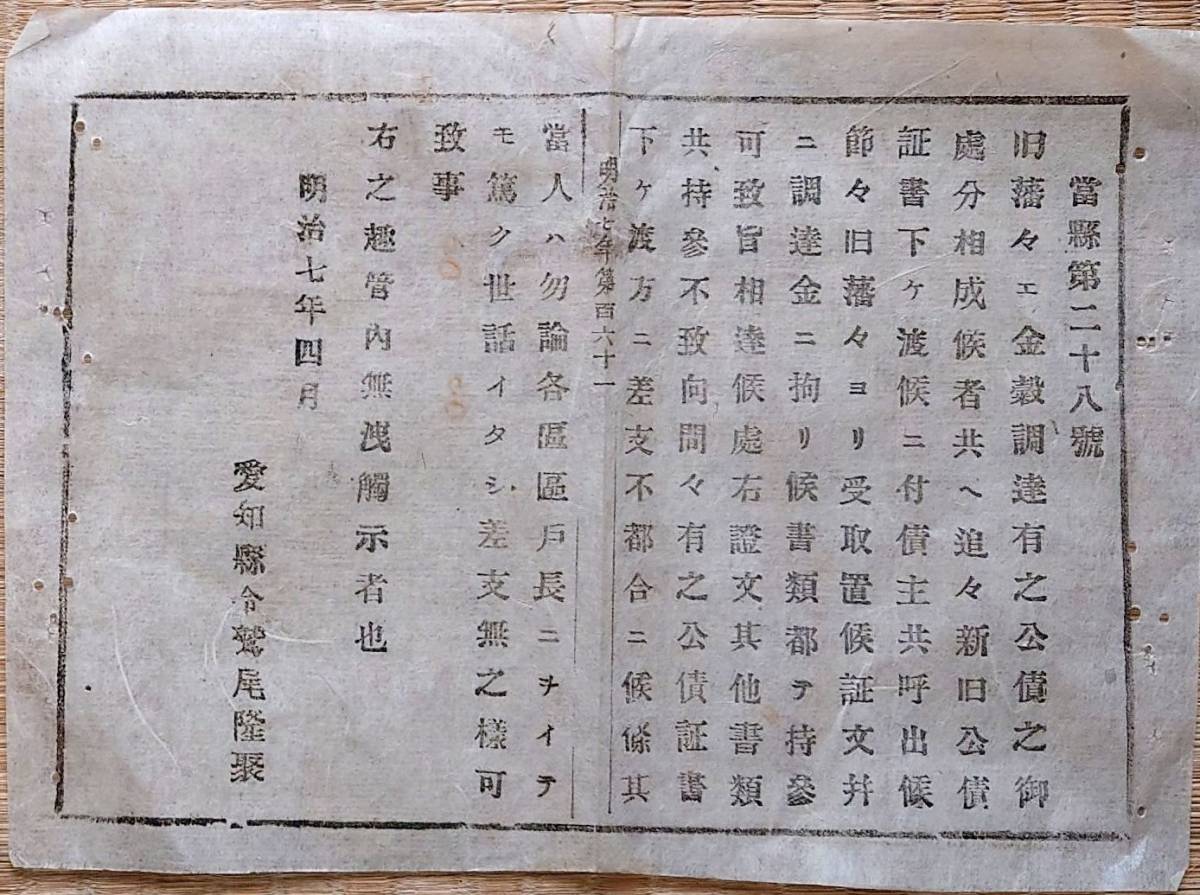 當縣第二十八號
旧藩々エ金穀調達有之公債之御
處分相成候者共ヘ追々新旧公債
証書下ケ渡候ニ付債主共呼出候
節々旧藩々ヨリ受取置候証文幷
ニ調達金ニ拘リ候書類都テ持參
可致旨相達候處右證文其他書類
共持參不致向間々有之公債証書
下ケ渡方ニ差支不都合ニ候條其
明治七年第百六十一
當人ハ勿論各區區戸長ニヲイテ
モ篤ク世話イタシ差支無之樣可
致事
右之趣管內無洩觸示者也
明治七年四月
愛知縣令鷲尾隆聚